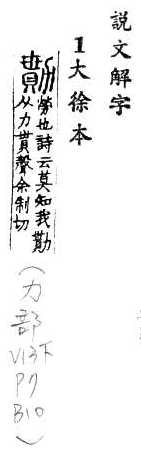 説文解字
1大徐本
勩
勞也詩云莫知我勩
从力貰聲余制切
(力部 V13下 P7 B10)